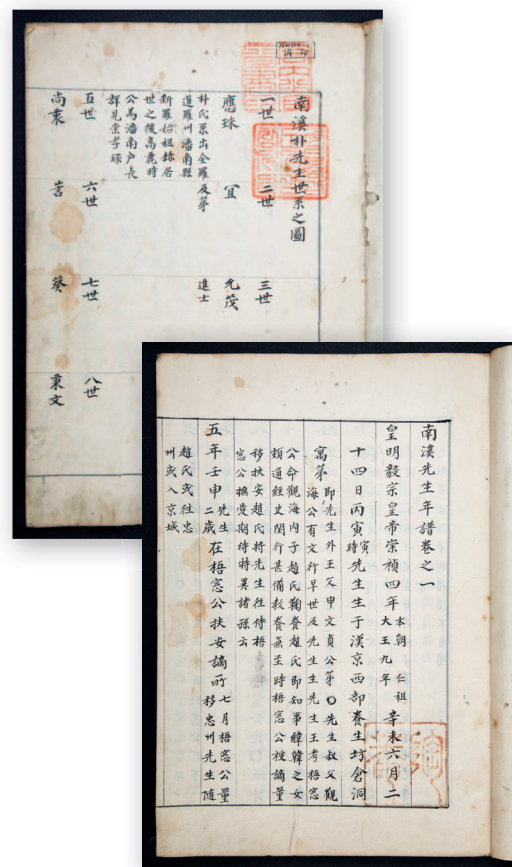 南溪朴先生世系之圖
一世 二世 三世
應珠 宜 允茂
朴氏系出全羅 及第 進士
道羅州潘南縣
新羅始祖赫居
世之後高麗時
公爲潘南戶長
詳見崇孝錄
五世 六世 七世 八世
尚衷 訔 葵 秉文
南溪先生年譜卷之一
皇明毅宗皇帝崇禎四年 本朝 仁祖 大王九年 辛未六月二
十四日丙寅 寅時 先生生于漢京西部養生坊倉洞
寓第 即先生外王父申文貞公第〇先生叔父觀
海公有文行早世及先生生先生王考梧窓
公命觀海內子趙氏鞠養趙氏即知事緯韓之女
頗通經史閨行甚備教養兼至時梧窓公被謫量
移扶安趙氏將先生往侍梧
窓公撫愛期待特異諸孫云
五年壬申 先生二歲 在梧窓公扶安謫所 七月梧窓公量 移忠州先生隨
趙氏或往忠
州或入京城